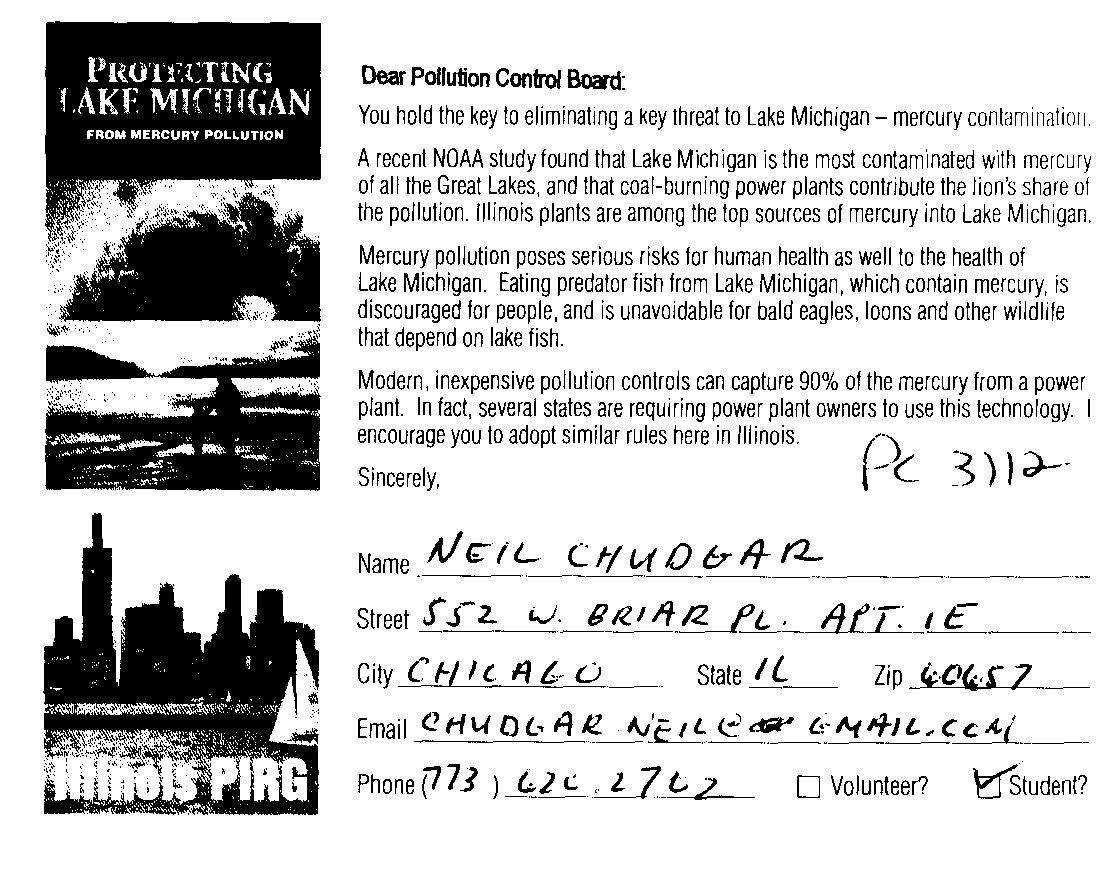 PROTECTING
LAKE MICHIGAN
FROM MERCURY POLLUTION
Dear Pollution Control Board:
You hold the key to eliminating a key threat to Lake Michigan – mercury contamination.
A recent NOAA study found that Lake Michigan is the most contaminated with mercury
of all the Great Lakes, and that coal-burning power plants contribute the lion's share of
the pollution. Illinois plants are among the top sources of mercury into Lake Michigan.
Mercury pollution poses serious risks for human health as well to the health of
Lake Michigan. Eating predator fish from Lake Michigan, which contain mercury, is
discouraged for people, and is unavoidable for bald eagles, loons and other wildlife
that depend on lake fish.
Modern, inexpensive pollution controls can capture 90% of the mercury from a power
plant. In fact, several states are requiring power plant owners to use this technology. I
encourage you to adopt similar rules here in Illinois.
PC 3112
Sincerely,
Name NEIL CHUDGAR
Street 552 W. BRIAR PL. APT. 1E
City CHICAGO State IL Zip 60657
Email CHUDGAR NEIL@ GMAIL.COM
Phone (773)
Volunteer? Student?
Illinois PIRG